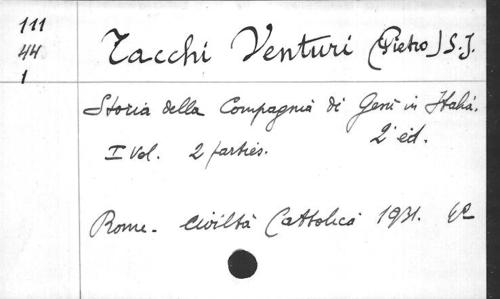 111
44
1
Tacchi Venturi (Pietro) S.J.
Storia della Compagnia di Gesù in Italia.
2e éd.
I Vol. 2 parties.
Rome. Civiltà Cattolica 1931.